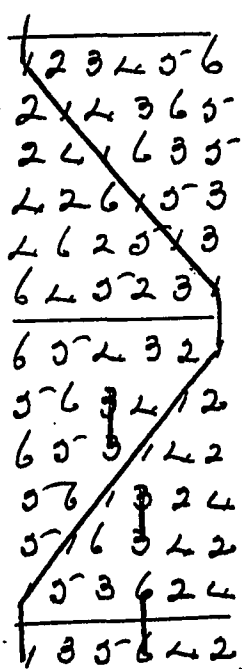 1 2 3 4 5 6
2 1 4 3 6 5
2 4 1 6 3 5
4 2 6 1 5 3
4 6 2 5 1 3
6 4 5 2 3 1
6 5 4 3 2 1
5 6 3 4 1 2
6 5 3 1 4 2
5 6 1 3 2 4
5 1 6 3 4 2
1 5 3 6 2 4
1 3 5 6 4 2